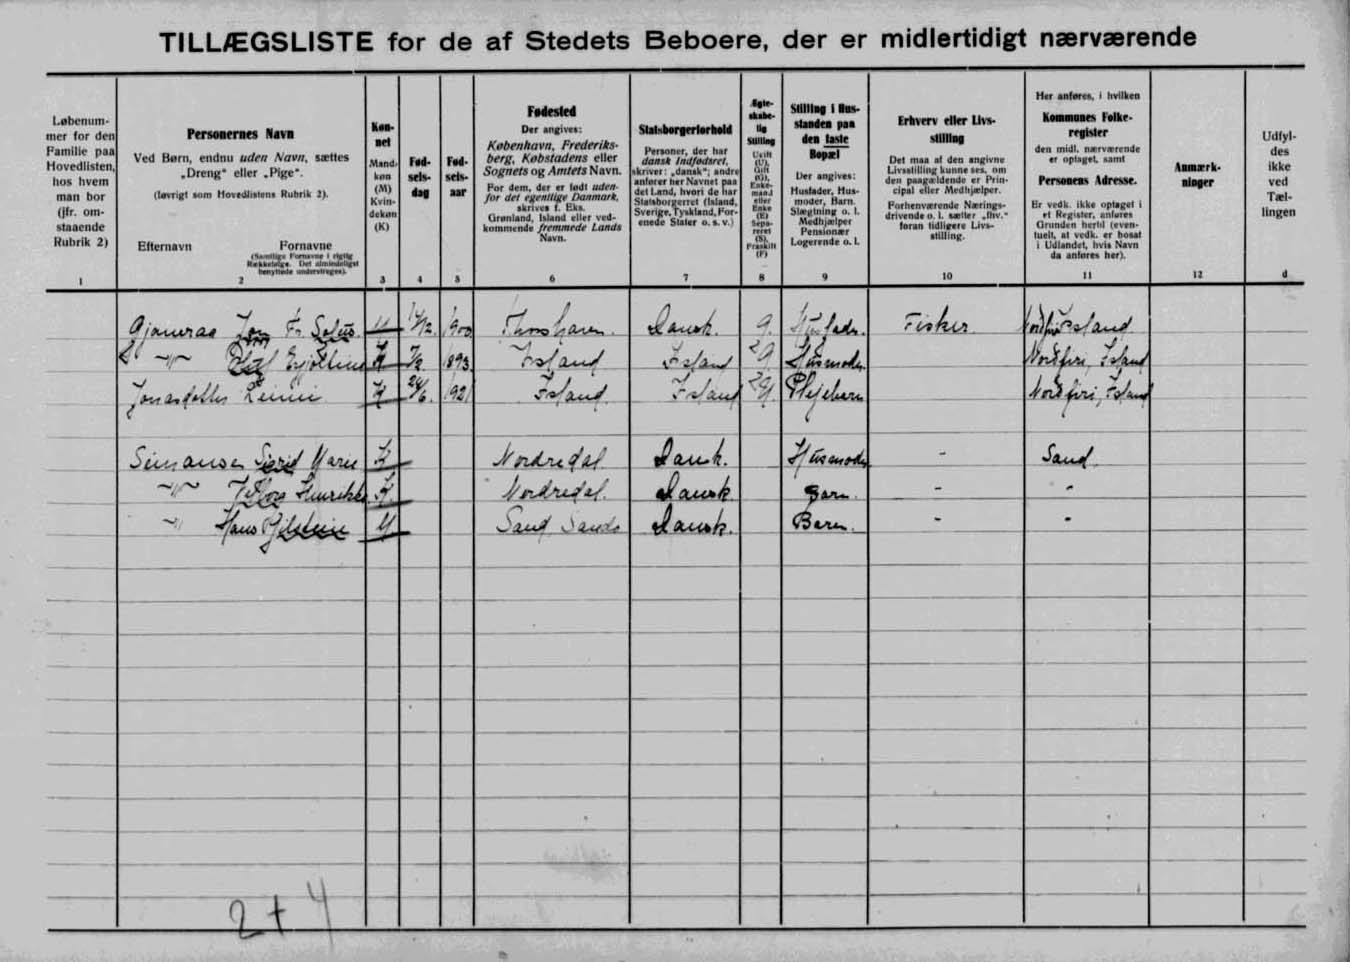 TILLÆGSLISTE for de af Stedets Beboere, der er midlertidigt nærværende
Løbenum-
mer for den
Familie paa
Hovedlisten,
hos hvem
man bor
(jfr. om-
staaende
Rubrik 2)
1
Personernes Navn
Ved Børn, endnu uden Navn, sættes
„Dreng“ eller „Pige“.
(Iøvrigt som Hovedlistens Rubrik 2).
Efternavn Fornavne
(Samtlige Fornavne i rigtig
Rækkefølge. Det almindeligst
benyttede understreges).
2
Køn-
net
Mand-
køn
(M)
Kvin-
dekøn
(K)
3
Fød-
sels-
dag
4
Fød-
sels-
aar
5
Fødested
Der angives:
København, Frederiks-
berg, Købstadens eller
Sognets og Amtets Navn.
For dem, der er født uden-
for det egentlige Danmark,
skrives f. Eks.
Grønland, Island eller ved-
kommende fremmede Lands
Navn.
6
Statsborgerforhold
Personer, der har
dansk Indfødsret,
skriver: „dansk“; andre
anfører her Navnet paa
det Land, hvori de har
Statsborgerret (Island,
Sverige, Tyskland, For-
enede Stater o. s. v.)
7
Ægte-
skabe-
lig
Stilling
Ugift
(U),
Gift
(G),
Enke-
mand
eller
Enke
(E)
Sepa-
reret
(S),
Fraskilt
(F)
8
Stilling i Hus-
standen paa
den faste
Bopæl
Der angives:
Husfader, Hus-
moder, Barn.
Slægtning o. l.
Medhjælper
Pensionær
Logerende o. l.
9
Erhverv eller Livs-
stilling
Det maa af den angivne
Livsstilling kunne ses, om
den paagældende er Prin-
cipal eller Medhjælper.
Forhenværende Nærings-
drivende o. l. sætter „fhv.“
foran tidligere Livs-
stilling.
10
Her anføres, i hvilken
Kommunes Folke-
register
den midl. nærværende
er optaget, samt
Personens Adresse.
Er vedk. ikke optaget i
et Register, anføres
Grunden hertil (even-
tuelt, at vedk. er bosat
i Udlandet, hvis Navn
da anføres her).
11
Anmærk-
ninger
12
Udfyl-
des
ikke
ved
Tæl-
lingen
d
Fr. M 1900 Thorshavn. Dansk. g. Husfader. Fisker Island
-"- K 1893 Island Island g. Husmoder Island
Jonasdatter K 1921 Island. Island Plejebarn Island
Simonsen Sigrid Marie K Nordredal Dansk. Husmoder - Sand.
-"- Henrikke K. Nordredal. Dansk. Barn. - -
-"- Hans M Sand, Dansk. Barn. - -
2 + 4